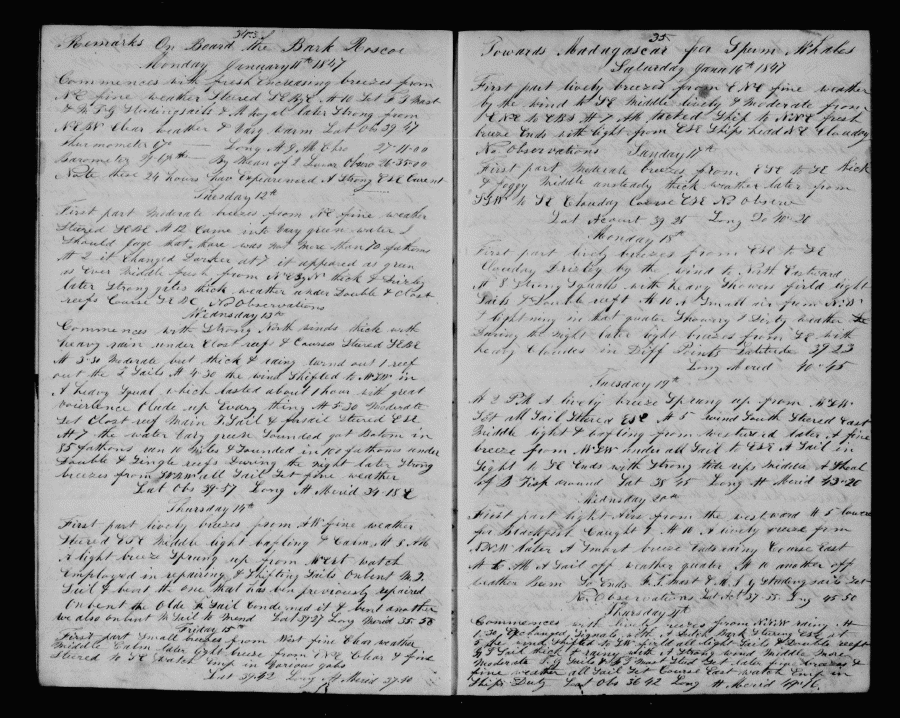 Remarks On Board the Bark Roscoe
Monday January 11th 1847
Commences with fresh Increasing breezes from
NE fine weather Steered SEBE At 10 Set F T Mast
& M T G Studingsails & M Royal later Strong from
NEBN Clear weather & Vary warm Lat Obs 39 47
thurmometer 70° Long At 9 AM Chro 27-11-00
Barometer By Mean of 2 Lunar Obsro 26-35-00
Note these 24 hours hav Expearenced A Strong ESE Curent
Tuesday 12th
First part Moderate breezes from NE fine weather
Steered SEBE At 12 Came into Vary green water I
Should Jage that thare was not more than 70 fathoms
At 2 it Changed Darker at 7 it appeared as green
as Ever Middle fresh from NEBN thick & Drisly
later Strong gales thick weather under Double & Close
reefs Course SEBE No Observations
Wednsday 13th
Commences with Strong North winds thick with
heavy rain under Close reefs & Courses Steered SEBE
At 3-30 Moderate but thick & rainy turned out 1 reef
out the T Sails At 4-30 the wind Shifted to WSW in
A heavy Squal which lasted about 1 hour with great
voierlence Clude up Every thing At 5-30 Moderate
Set Close reef Main T Sail & foresail Steered ESE
At 7 the water Vary green Sounded got Botom in
85 fathoms ran 10 Miles & Sounded in 100 fathoms under
Double & Single reefs During the night later Strong
breezes from WSW all Sail Set fine weather
Lat Obs 39-37 Long At Merid 34-15 E
Thursday 14th
First part lively breezes from SW fine weather
Steered ESE Middle light bafling & Calm At 5 AM
A light breeze Sprung up from watch
Employed in repairing & Shifting Sails Onbent M T
Sail & bent the one that has ben previously repaired
Onbent the Olde F Sail Condemed it & bent another
we also onbent M Sail to Mend Lat 39 27 Long Merid 35 58
Friday 15th
First part Small breezes from West fine Clear weather
Middle Calm later light breeze from ENE Clear & fine
Steered to SE watch Emp in Various gobs
Lat 39 42 Long At Merid 37 40
35
Towards Madagascar for Sperm Whales
Saturday Janu 16th 1847
First part lively breezes from ENE fine weather
by the wind to SE Middle lively & Moderate from
ENE to EBS At 7 AM tacked Ship to NNE fresh
breeze Ends with light from ESE Ships head NE Cloudy
No Observations Sunday 17th
First part Moderate breezes from ESE to SE thick
& foggy Middle unsteady thick weather later from
SSW to SE Clouday Course ESE No Observ
Lat Acount 39 25 Long Do
Monday 18th
First part lively breezes from ESE to SE
Clouday Drisley by the wind to North Eastward
At 8 Strong Squals with heavy Showers firld light
Sails & Double reeft At 10 A Small air from NNW
& lightning in that quater Showery & Dirty weather
During the night later light breezes from SE with
heavy Cloudes in Diff Points Latitude 39 23
Long Merid 40-45
Tuesday 19th
At 2 PM A lively breeze Sprung up from WSW
Set all Sail Steered ESE At 5 wind South Steered East
Middle light & bafling from westward later A fine
breeze from WSW under all Sail to ESE A Sail in
Sight to SE Ends with Strong tide rips Middle A Shoal
of B Fish around Lat 38 45 Long At Merid 43-20
Wednsday 20th
First part light Airs from the westward At 5 lowered
for Blackfish Caught 1 At 10 A lively breeze from
NNW later A Smart breeze Ends rainy Course East
At 10 AM A Sail off weather quater At 10 another off
weather beam So Ends F T Mast & M T G Studing sails Set
No Observations Lat Act 37-55 Long 45-50
Thursday 21st
Commences with lively breezes from NNW rainy At
1.30 Exchanged Signals with A Dutch Bark Steering ESE at
wind Shifted to SW firld light Sails & Double reeft
T Sail thick & rainy with A Strong wind Middle More
Moderate T G Sails & F T Mast Stud Set later fine breezes &
fine weather all Sail Set Course East watch Emp in
Ships Duty Lat Obs 36 42 Long At Merid 49-16